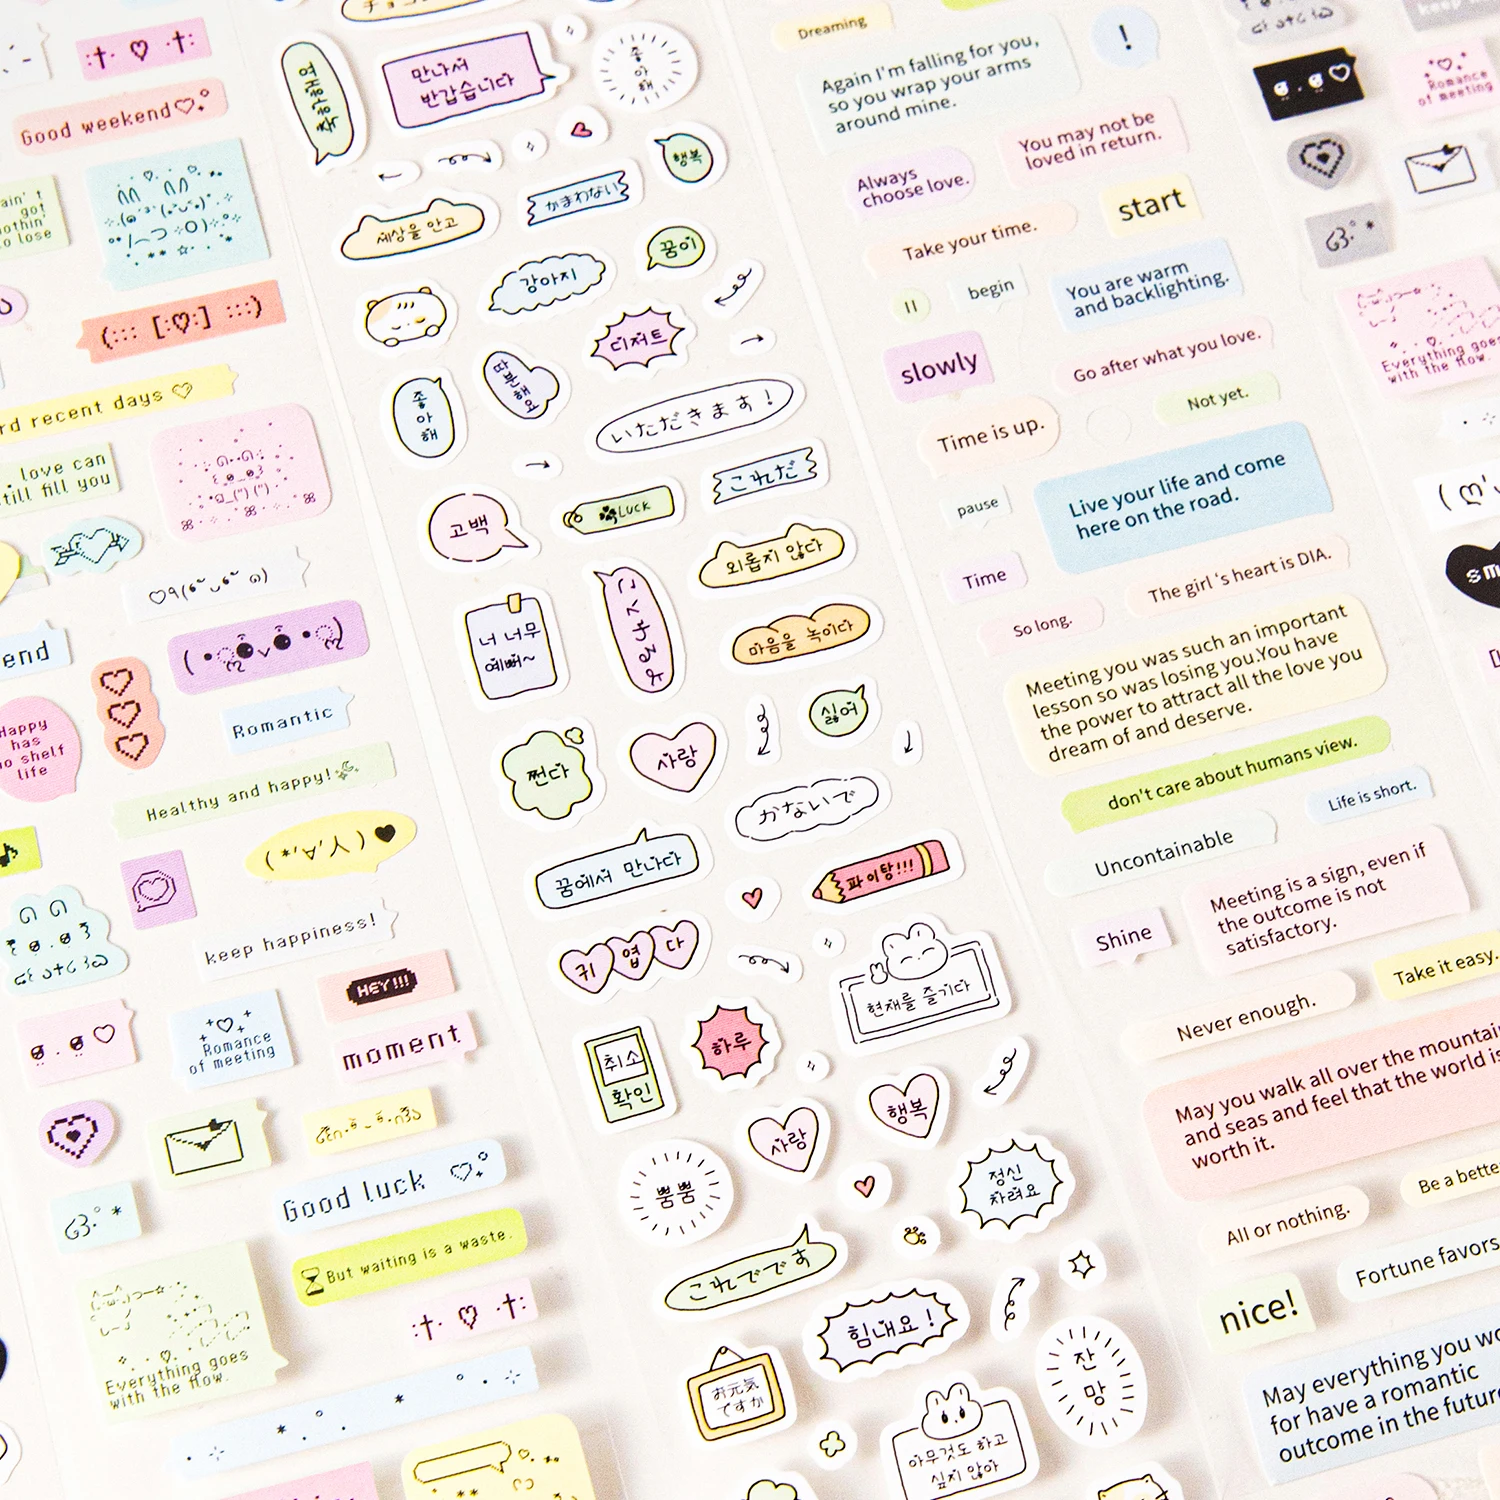 Good weekend♡
ain' t
got
nothin'
to lose
rd recent days ♡
love can
till fill you
end
Romantic
Happy
has
no shelf
life
Healthy and happy!
keep happiness!
HEY!!!
Romance
of meeting
moment
Good luck
But waiting is a waste.
Everything goes
with the flow.
착하해여
만나서
반갑습니다
좋
아
해
행복
かまわない
세상을 안고
꿈이
강아지
디저트
좋
아
해
답
분
해
요
いただきます!
これだ
고백
LUCK
외롭지 않다
너 너무
예뻐~
마음을 녹이다
싫어
쩐다
사랑
かないで
꿈에서 만나다
파이탕!!!
귀 엽 다
현재를 즐기다
취소
확인
하루
사랑
행복
뿜뿜
정신
차려요
これでです
힘내요!
잔
망
お元気
ですか
아무것도 하고
싶지 않아
Dreaming
!
Again I'm falling for you,
so you wrap your arms
around mine.
You may not be
loved in return.
Always
choose love.
start
Take your time.
begin
You are warm
and backlighting.
slowly
Go after what you love.
Not yet.
Time is up.
pause
Live your life and come
here on the road.
Time
The girl 's heart is DIA.
So long.
Meeting you was such an important
lesson so was losing you.You have
the power to attract all the love you
dream of and deserve.
don't care about humans view.
Life is short.
Uncontainable
Meeting is a sign, even if
the outcome is not
satisfactory.
Shine
Take it easy.
Never enough.
May you walk all over the mountai
and seas and feel that the world is
worth it.
Be a bette
All or nothing.
Fortune favors
nice!
May everything you wo
for have a romantic
outcome in the future
Romance
of meeting
Everything goes
with the flow.